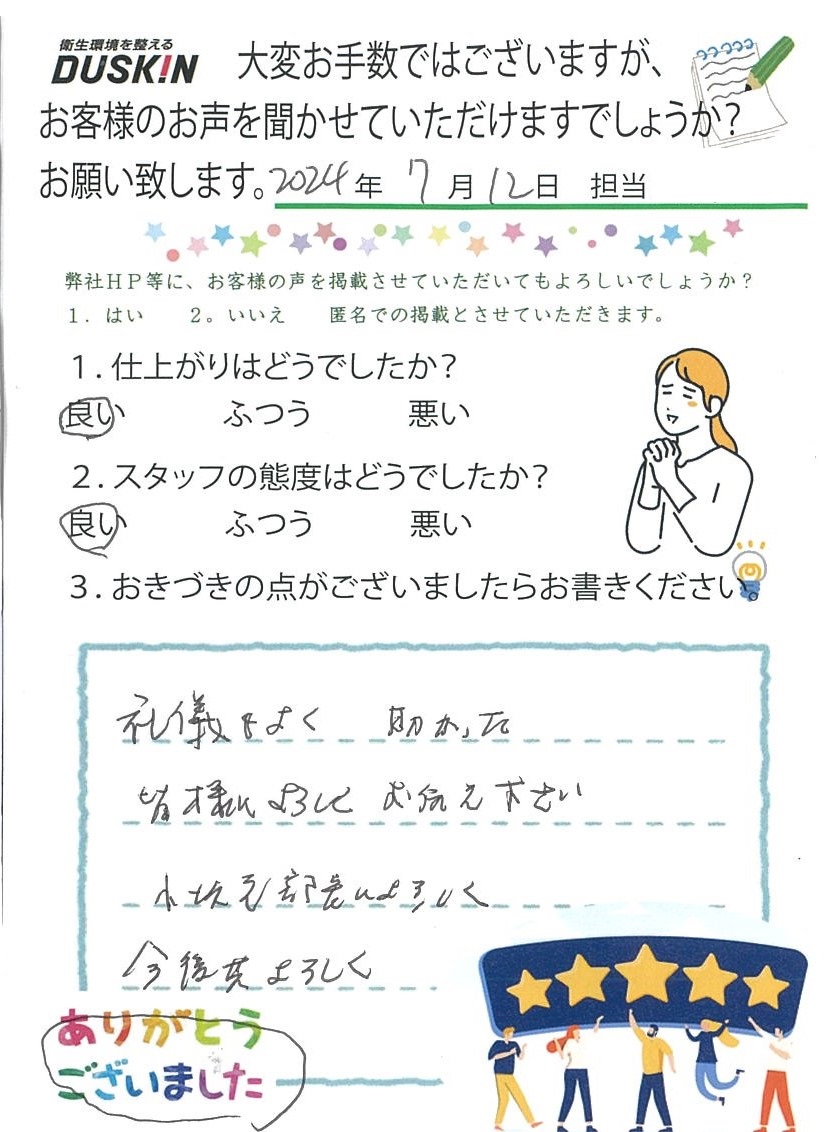 衛生環境を整える
DUSKIN
大変お手数ではございますが、
お客様のお声を聞かせていただけますでしょうか?
お願い致します。2024年 7月12日 担当
弊社HP等に、お客様の声を掲載させていただいてもよろしいでしょうか?
1. はい 2。いいえ 匿名での掲載とさせていただきます。
1.仕上がりはどうでしたか?
良い ふつう 悪い
2.スタッフの態度はどうでしたか?
良い ふつう 悪い
3.おきづきの点がございましたらお書きください。
礼儀もよく 助かった
皆様によろしく お伝え下さい
部長によろしく
今後共よろしく
ありがとう
ございました